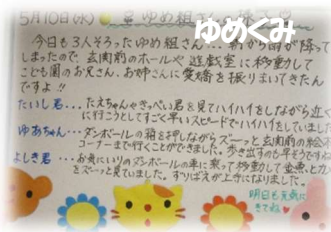 5月10日(水) 童ゆめ組
ゆめくみ
今日も3人そろったゆめ組さん…朝から雨が降って
しまったので、玄関前のホールや遊戯室に移動して
こども園のお兄さん、お姉さんに愛嬌を振りまいてきたん
ですよ!!
たいし君… たえちゃんやきっぺい君を見てハイハイをしながら近く
に行こうとしてすごく早いスピードでハイハイをしていました
ゆあちゃん… ダンボールの箱を押しながらズーッと玄関前の絵本
コーナーまで行くことができました。歩き出すのも早そうですね
よしき君… お気にいりのダンボールの車に乗って移動して金魚とカ
をズーッと見ていました。ずりばえが上手になりました。
明日も元気に
きてね